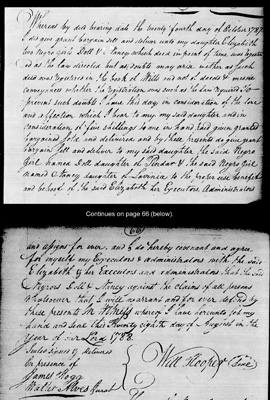 Whereas by deed bearing date the twenty fourth day of October 1787
I did give grant bargain sell and deliver unto my daughter Elizabeth
two Negro girls Doll & Nancy which deed in point of time was register
ed as the law directed but as doubts may arise whether as such
deed was registered in the book of Wills and not of deeds & mesne
conveyances whether the registration was such as the law required To
prevent such doubts I have this day in consideration of the love
and affection which I bear to my said daughter and in
consideration of five shillings to me in hand paid given granted
bargained sold and delivered and by these presents do give grant
bargain sell and deliver to my said daughter the said Negro
Girl named Doll daughter of & the said Negro Girl
named Nancy daughter of Lavinia to the proper use benefit
and behoof of the said Elizabeth her Executors Administrators
Continues on page 66 (below).
(66)
and assigns for ever, and I do hereby covenant and agree
for myself my Executors & administrators with the said
Elizabeth & her Executors and administrators that the said
Negroes Doll & Nancy against the claims of all persons
whatsoever that I will warrant and for ever defend by
these presents In Witness whereof I have hereunto set my
hand and seal this twenty eighth day of August in the
year of our Lord 1788.
Sealed Signed & delivered
In presence of
James Hogg
Walter Alves Jurat
Will Hooper (Seal)